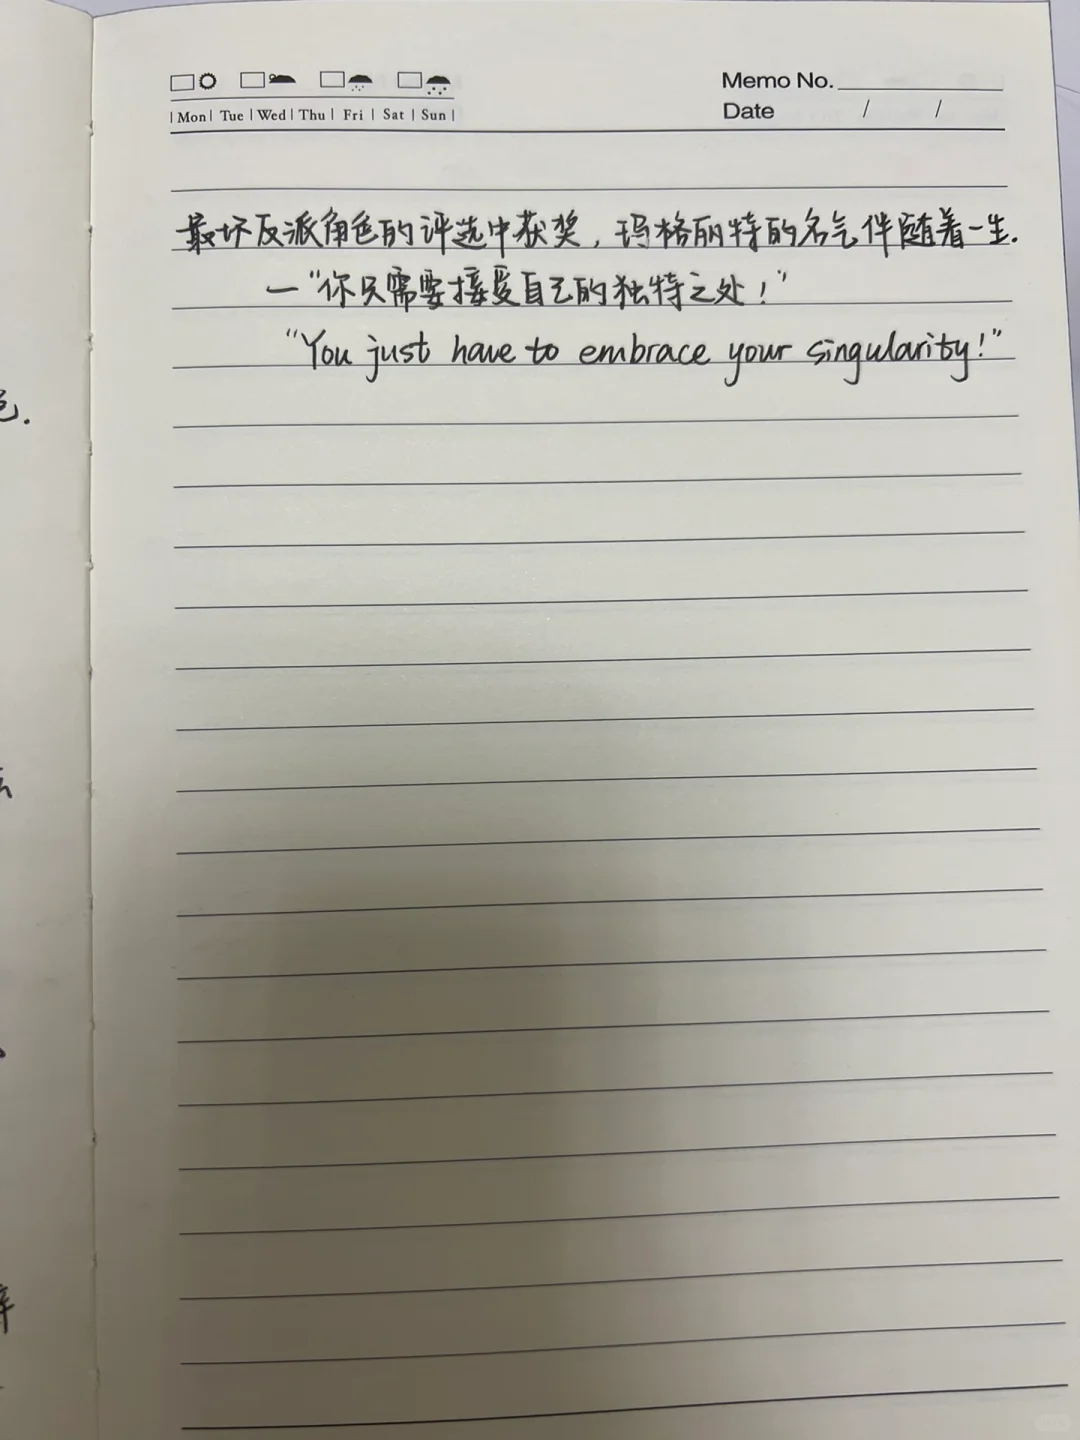 Memo No.
Date / /
| Mon | Tue | Wed | Thu | Fri | Sat | Sun |
最坏反派角色的评选中获奖，玛格丽特的名气伴随着一生.
—“你只需要接受自己的独特之处！”
“You just have to embrace your singularity!”